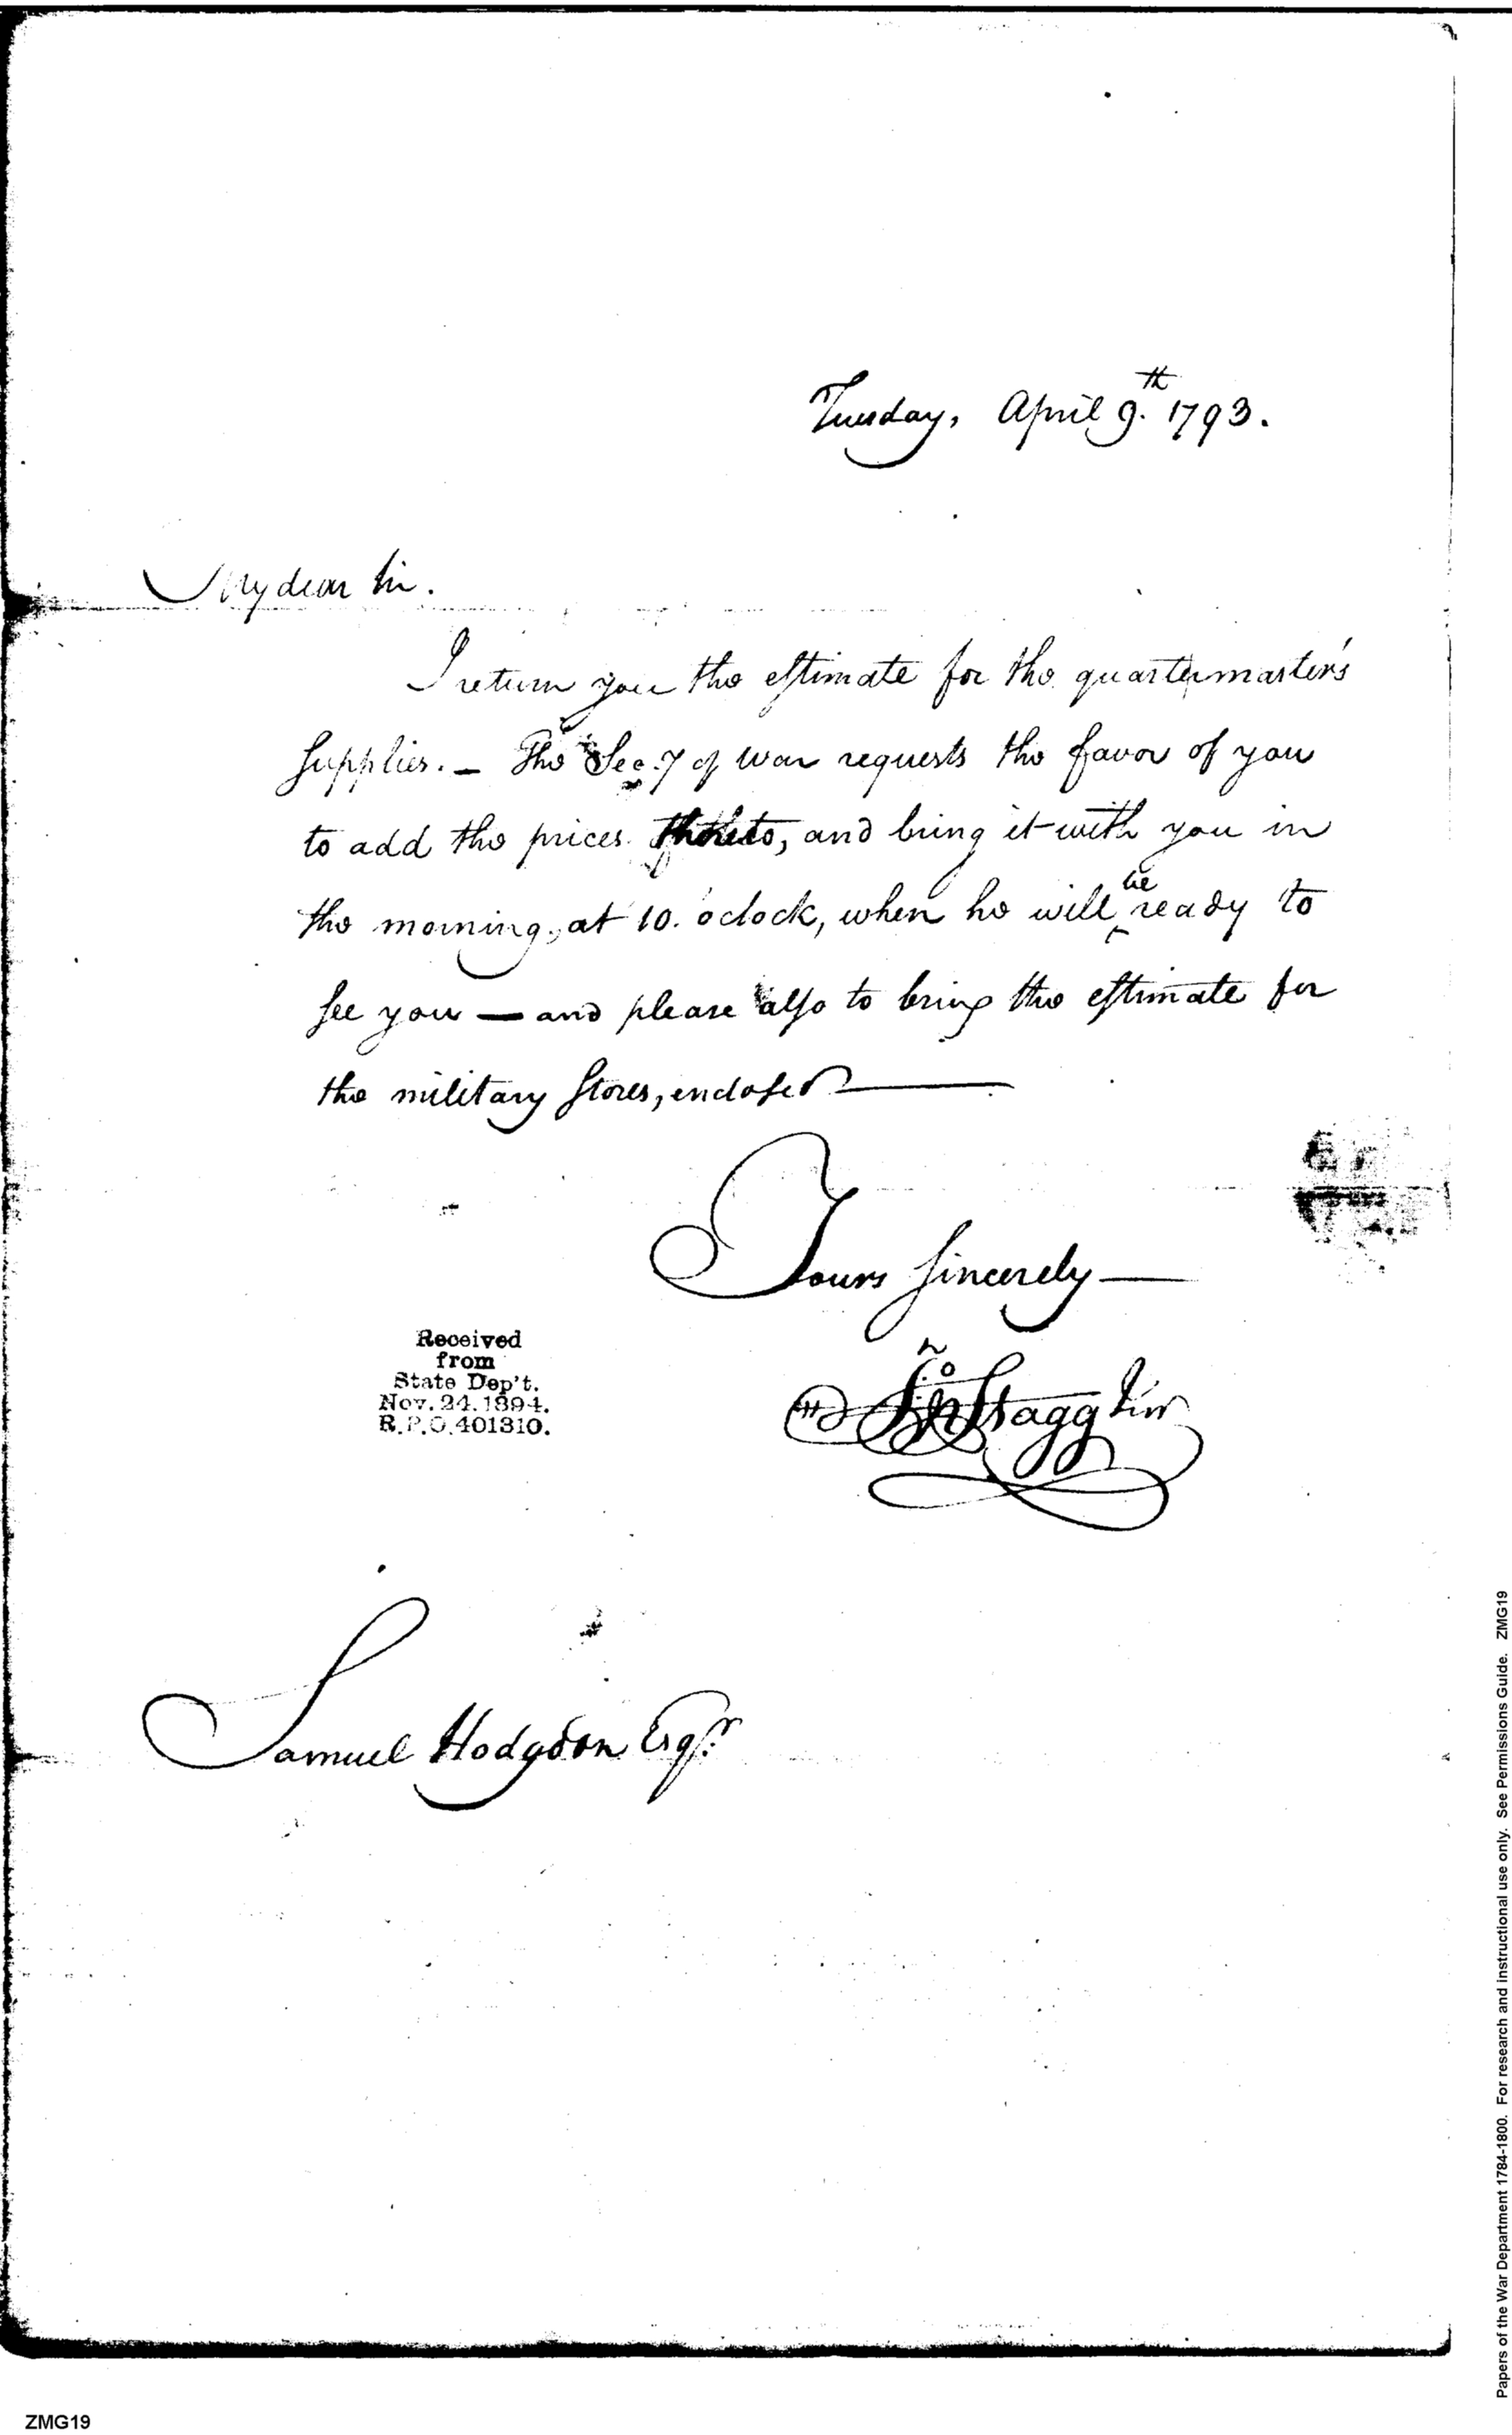 Tuesday, April 9.th 1793.
My dear Sir.
I return you the estimate for the quartermaster's
supplies. — The Sec.y of war requests the favor of you
to add the prices thereto, and bring it with you in
the morning, at 10. oclock, when he will be ready to
see you — and please also to bring the estimate for
the military stores, enclosed —
Yours sincerely —
Jno Stagg Jun
Received
from
State Dep't.
Nov. 24. 1894.
R.P.O. 401310.
Samuel Hodgdon Esqr.
Papers of the War Department 1784-1800. For research and instructional use only. See Permissions Guide. ZMG19
ZMG19